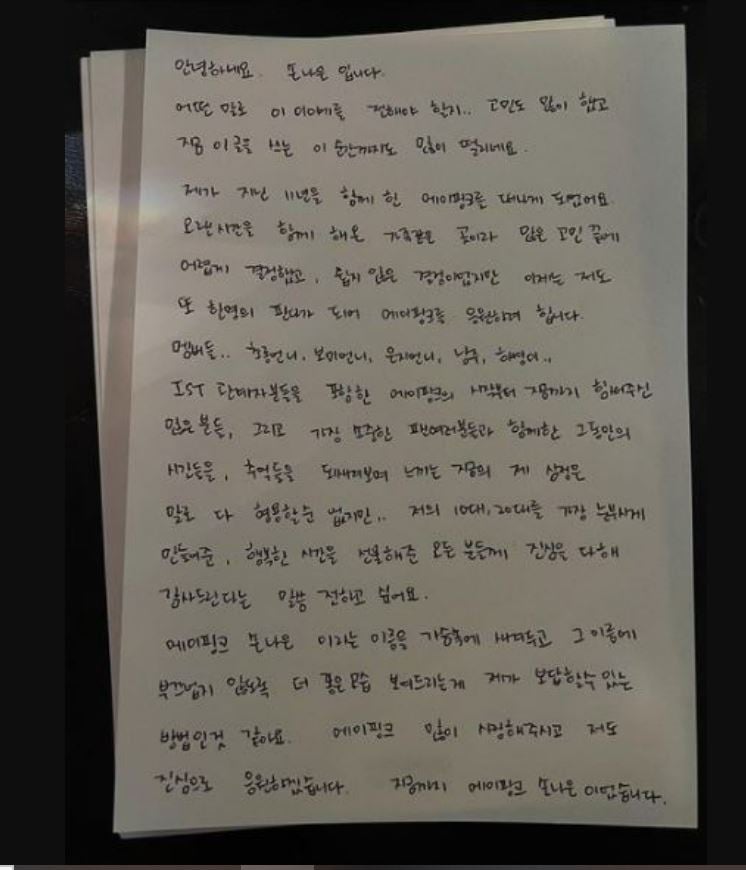 안녕하세요. 손나은 입니다.
어떤 말로 이 이야기를 전해야 할지.. 고민도 많이 했고
지금 이 글을 쓰는 이 순간까지도 많이 떨리네요.
제가 지난 11년을 함께 한 에이핑크를 떠나게 되었어요.
오랜시간을 함께 해온 가족같은 곳이라 많은 고민 끝에
어렵게 결정했고, 쉽지 않은 결정이었지만 이제는 저도
또 한명의 판다가 되어 에이핑크를 응원하려 합니다.
멤버들.. 초롱언니, 보미언니, 은지언니, 남주, 하영이..,
IST 관계자분들을 포함한 에이핑크의 시작부터 지금까지 힘써주신
많은 분들, 그리고 가장 소중한 팬여러분들과 함께한 그동안의
시간들을, 추억들을 되새겨보며 느끼는 지금의 제 심정은
말로 다 형용할순 없지만.. 저의 10대, 20대를 가장 눈부시게
만들어준, 행복한 시간을 선물해준 모든 분들께 진심을 다해
감사드린다는 말씀 전하고 싶어요.
에이핑크 손나은 이라는 이름을 가슴속에 새겨두고 그 이름에
부끄럽지 않도록 더 좋은 모습 보여드리는게 제가 보답할수 있는
방법인것 같아요. 에이핑크 많이 사랑해주시고 저도
진심으로 응원하겠습니다. 지금까지 에이핑크 손나은 이었습니다.